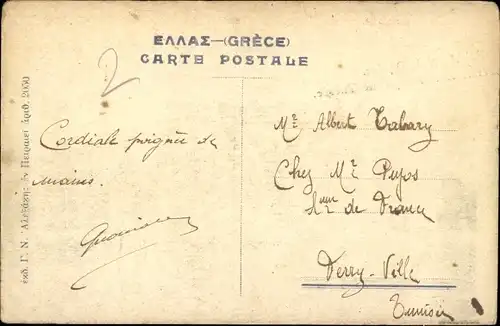 ΕΛΛΑΣ—(GRÈCE)
CARTE POSTALE
2
Cordiale poignée de
mains.
Mr Albert
Chez Mr Pujos
de France
Ferry-Ville
Tunisie
ἐκδ. Γ. Ν. Ἀλεξάκης ἐν Πειραιεῖ ἀριθ.